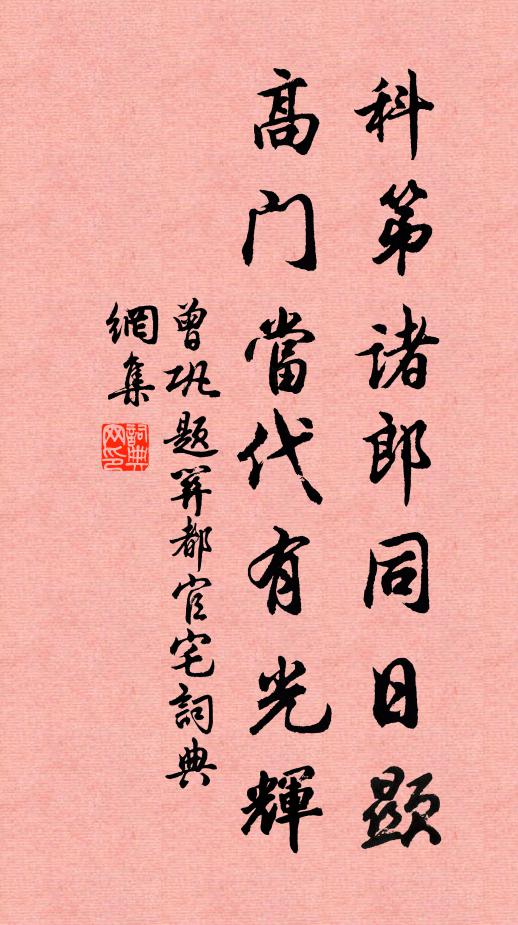 科第诸郎同日顕
高门當代有光輝
曾巩题关都官宅詞典
網集
詞典
网印